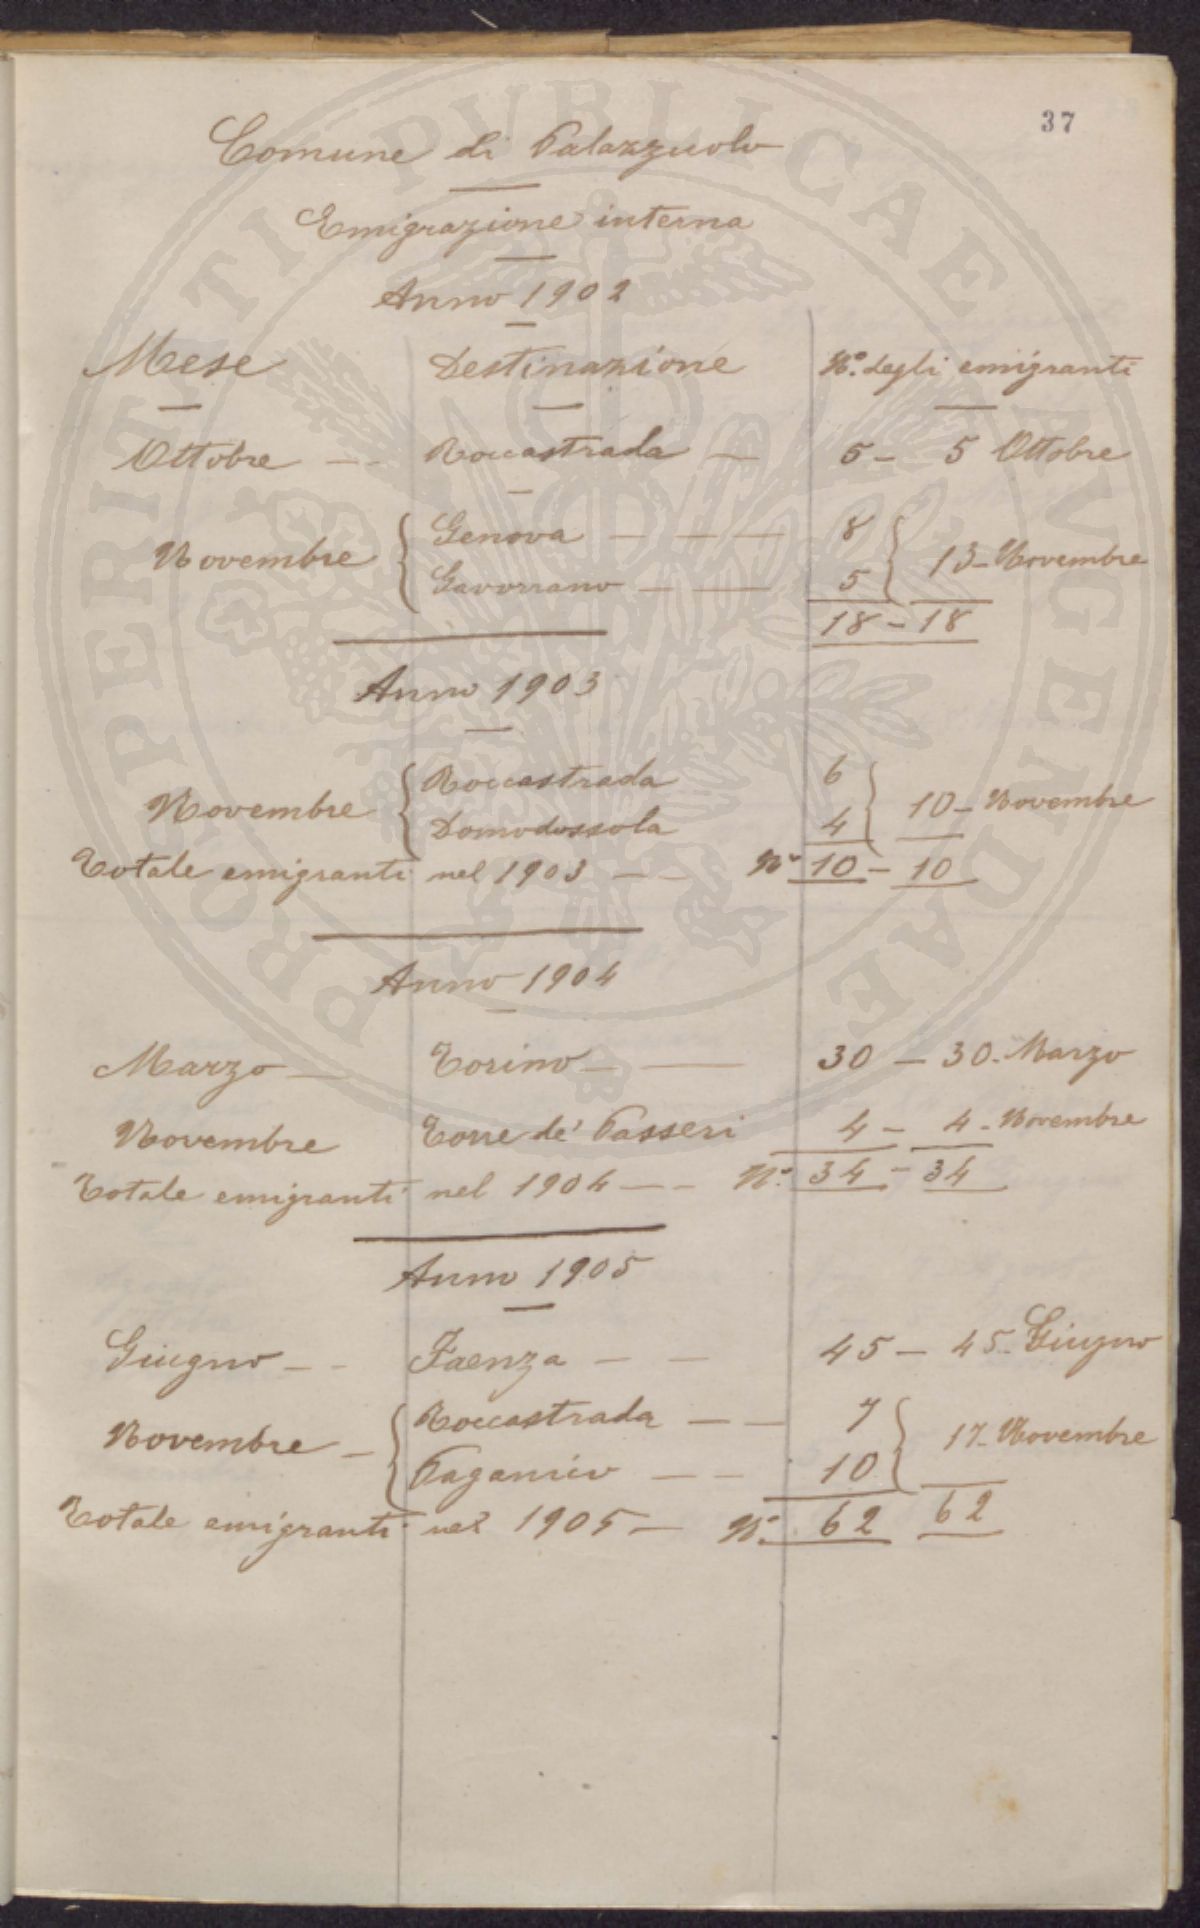 37
Comune di Palazzuolo
Emigrazione interna
Anno 1902
Mese Destinazione N.º degli emigranti
Ottobre -- Roccastrada — 5 - 5 Ottobre
Novembre { Genova — — — 8 } 13 - Novembre
Gavorrano — — 5
18 - 18
Anno 1903
Novembre { Roccastrada 6 } 10 - Novembre
Domodossola 4
Totale emigranti nel 1903 — — Nº 10 - 10
Anno 1904
Marzo — Torino — — 30 — 30 - Marzo
Novembre Torre de' Passeri 4 - 4 - Novembre
Totale emigranti nel 1904 — — Nº 34 - 34
Anno 1905
Giugno — — Faenza — — 45 — 45 - Giugno
Novembre — { Roccastrada — — 7 } 17 - Novembre
Paganico — — 10
Totale emigranti nel 1905 — Nº 62 62
PROSPERITATI PUBLICAE AUGENDAE